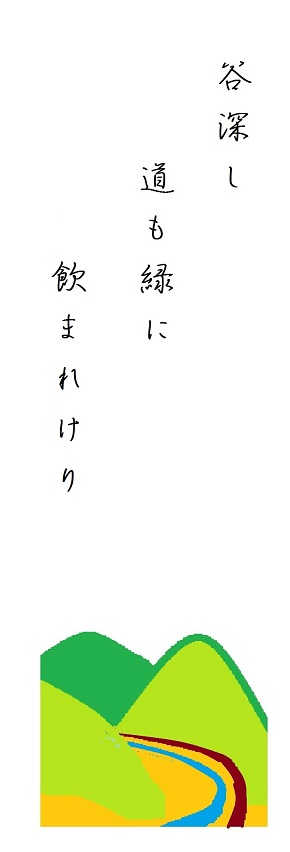 谷深し
道も緑に
飲まれけり